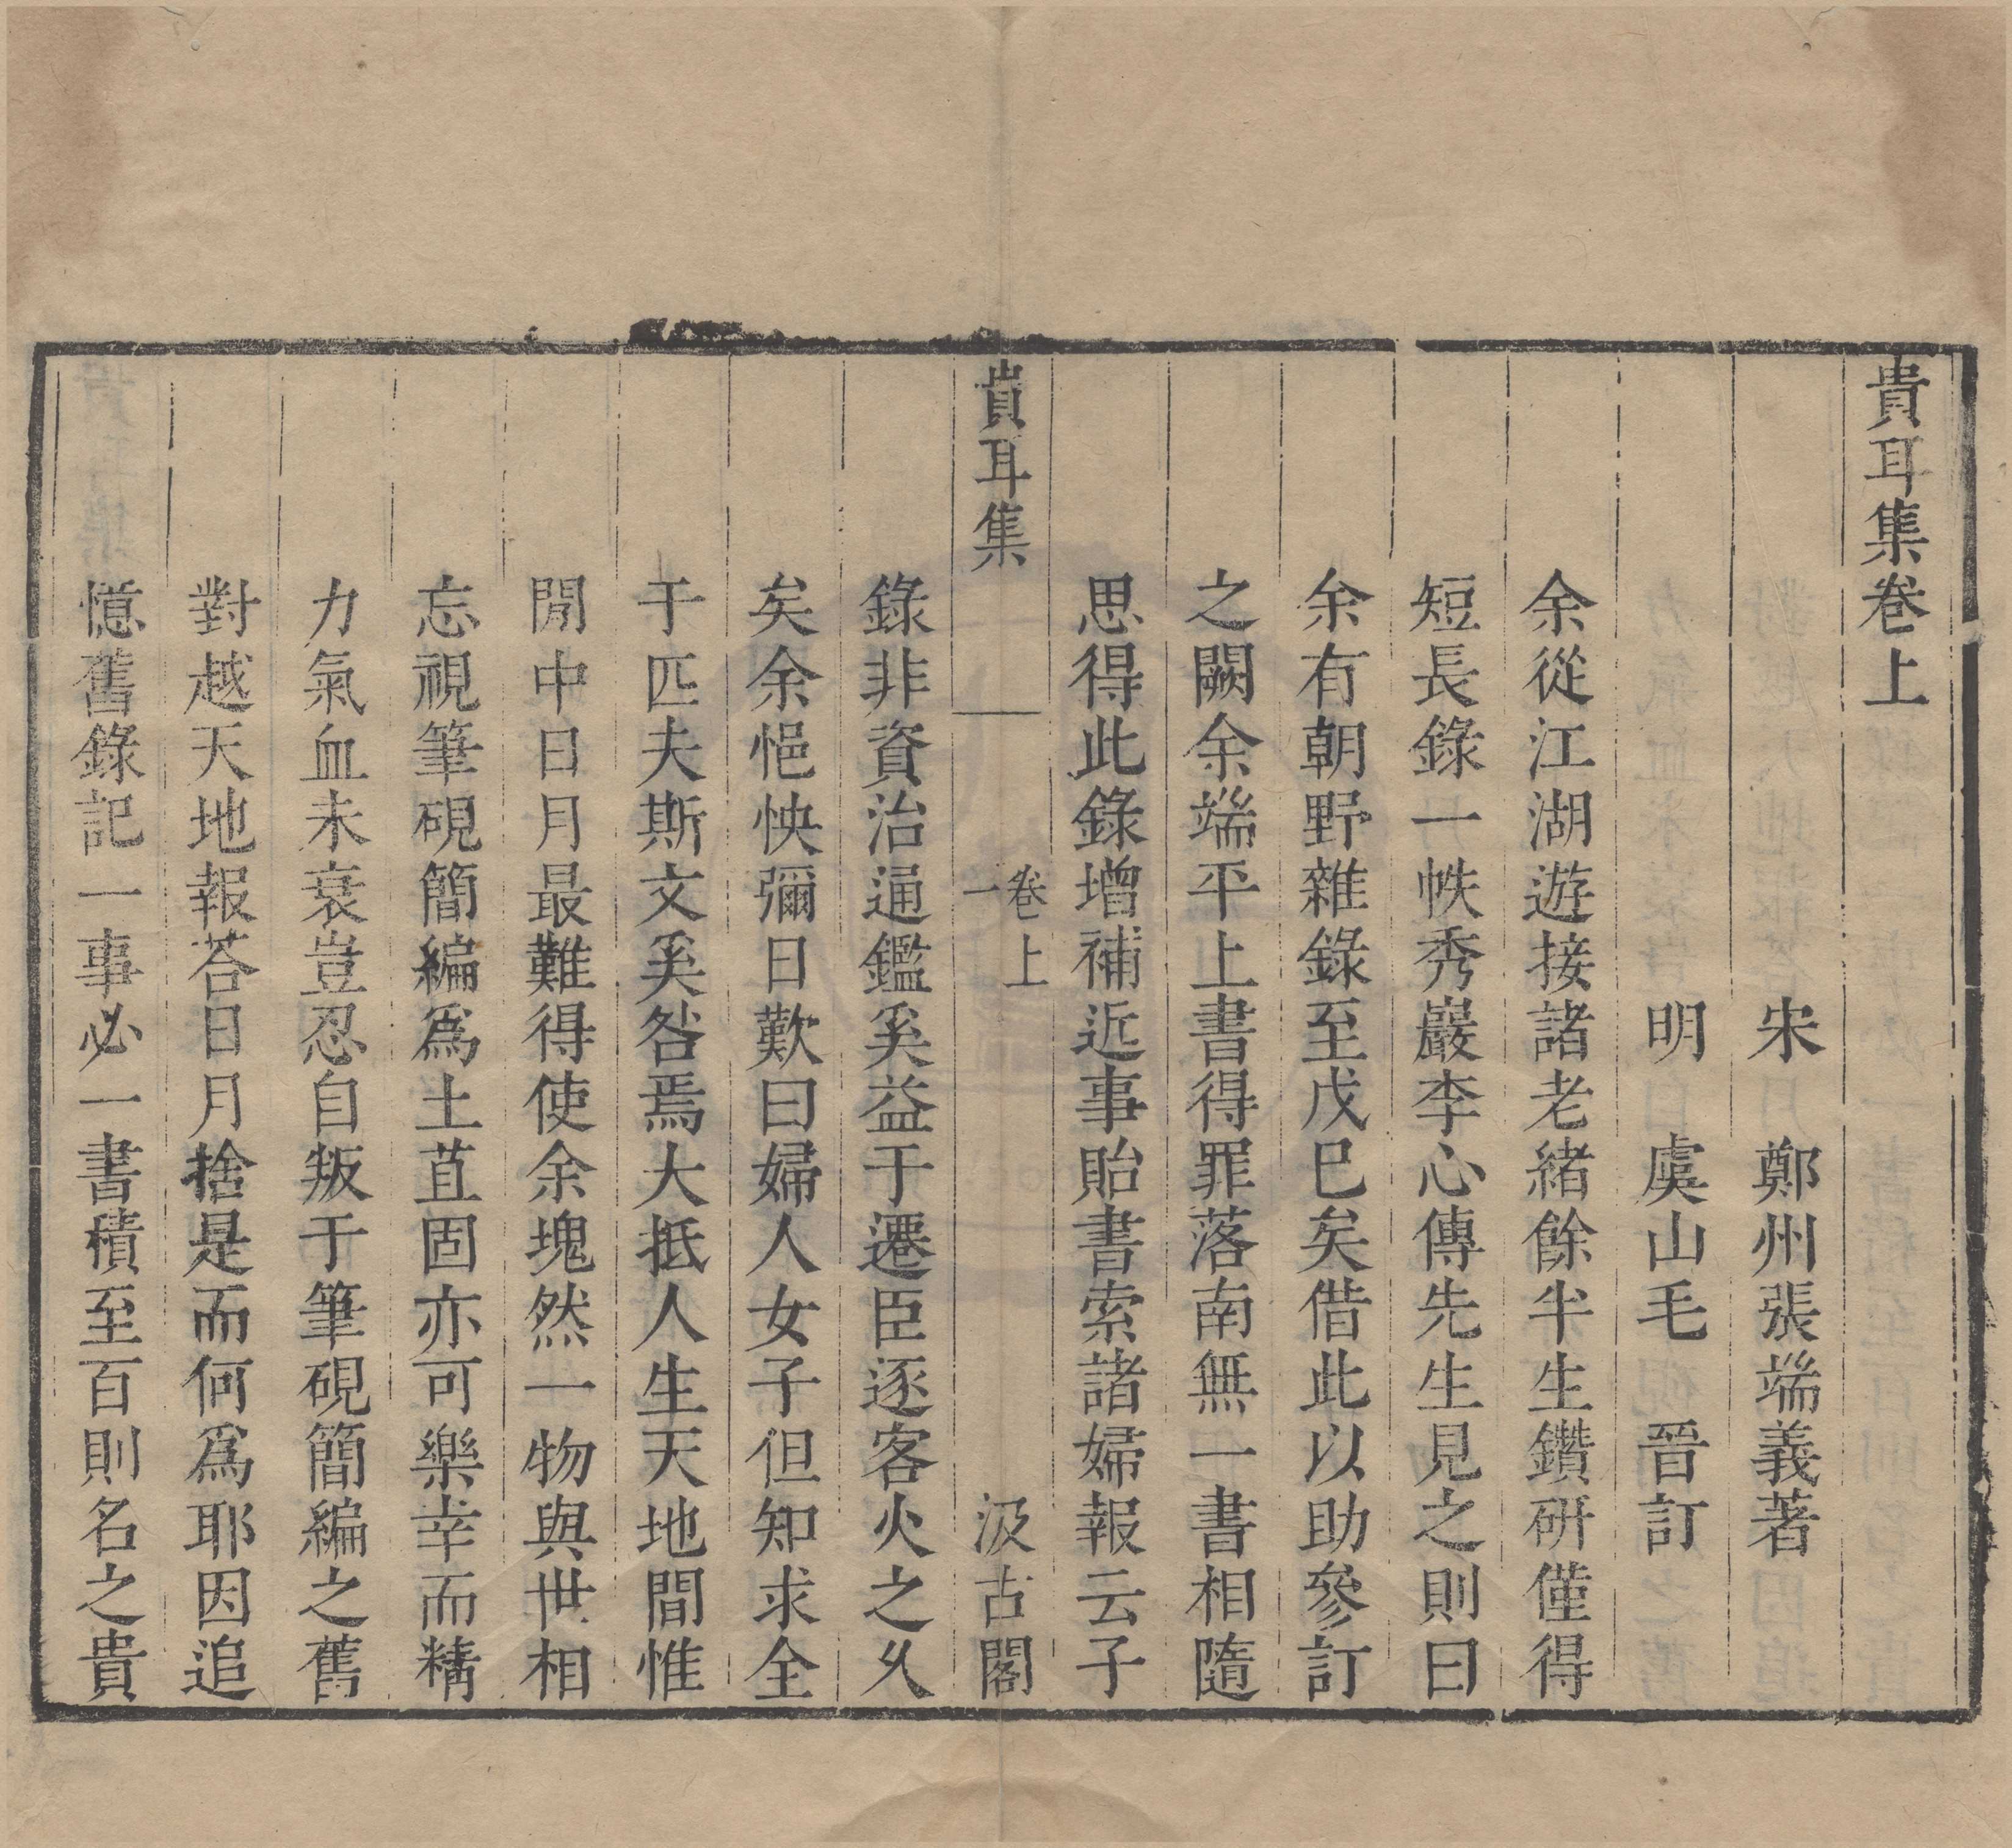 貴耳集卷上
宋 鄭州張端義著
明 虞山毛 晉訂
余從江湖遊接諸老緒餘半生鑽研僅得
短長錄一帙秀巖李心傳先生見之則曰
余有朝野雜錄至戊巳矣借此以助參訂
之闕余端平上書得罪落南無一書相隨
思得此錄增補近事貽書索諸婦報云子
貴耳集
卷上
一
汲古閣
錄非資治通鑑奚益于遷臣逐客火之久
矣余悒怏彌日歎曰婦人女子但知求全
于匹夫斯文奚咎焉大抵人生天地間惟
閒中日月最難得使余塊然一物與世相
忘視筆硯簡編爲土苴固亦可樂幸而精
力氣血未衰豈忍自叛于筆硯簡編之舊
對越天地報荅日月捨是而何爲耶因追
憶舊錄記一事必一書積至百則名之貴